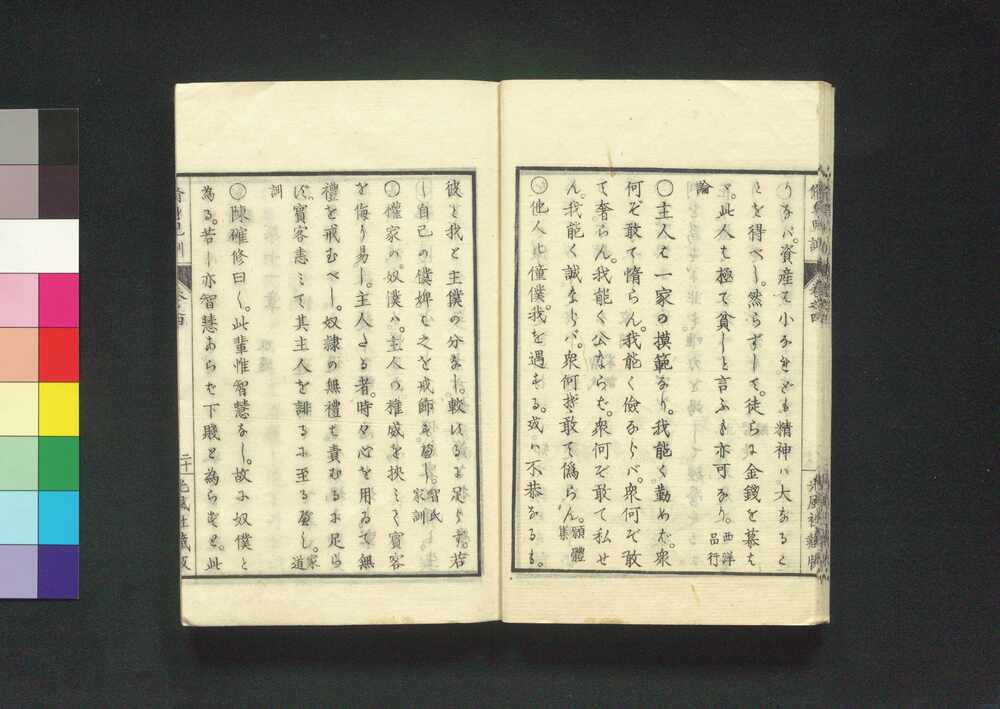 りなバ。資産ハ小なれども精神ハ大なるこ
とを得べし。然らずして。徒らに金錢を墓はゞ
此人は極て貧しと言ふも亦可なり。西洋品行
論
〇主人は一家の摸範なり。我能く勤めバ。衆
何ぞ敢て惰らん。我能く儉ならバ。衆何ぞ敢
て奢らん。我能く公ならバ。衆何ぞ敢て私せ
ん。我能く誠ならバ。衆何ぞ敢て僞らん。願體集
〇他人に僮僕。我を遇する。或ハ不恭なるも。
彼と我と主僕の分なし。較ぶるに足らず。若
し自己の僕婢は之を戒飾すべし。曾氏家訓
〇權家の奴僕ハ。主人の權威を挾ミて賓客
を侮り易し。主人たる者。時々心を用ゐて無
禮を戒むべし。奴隷の無禮は責むるに足ら
ず。賓客恚ミて其主人を誹るに至るべし。家道
訓
〇陳確修曰く。此輩惟智慧なし。故に奴僕と
為る。若し亦智慧あらば下賤と為らずと。此
二十